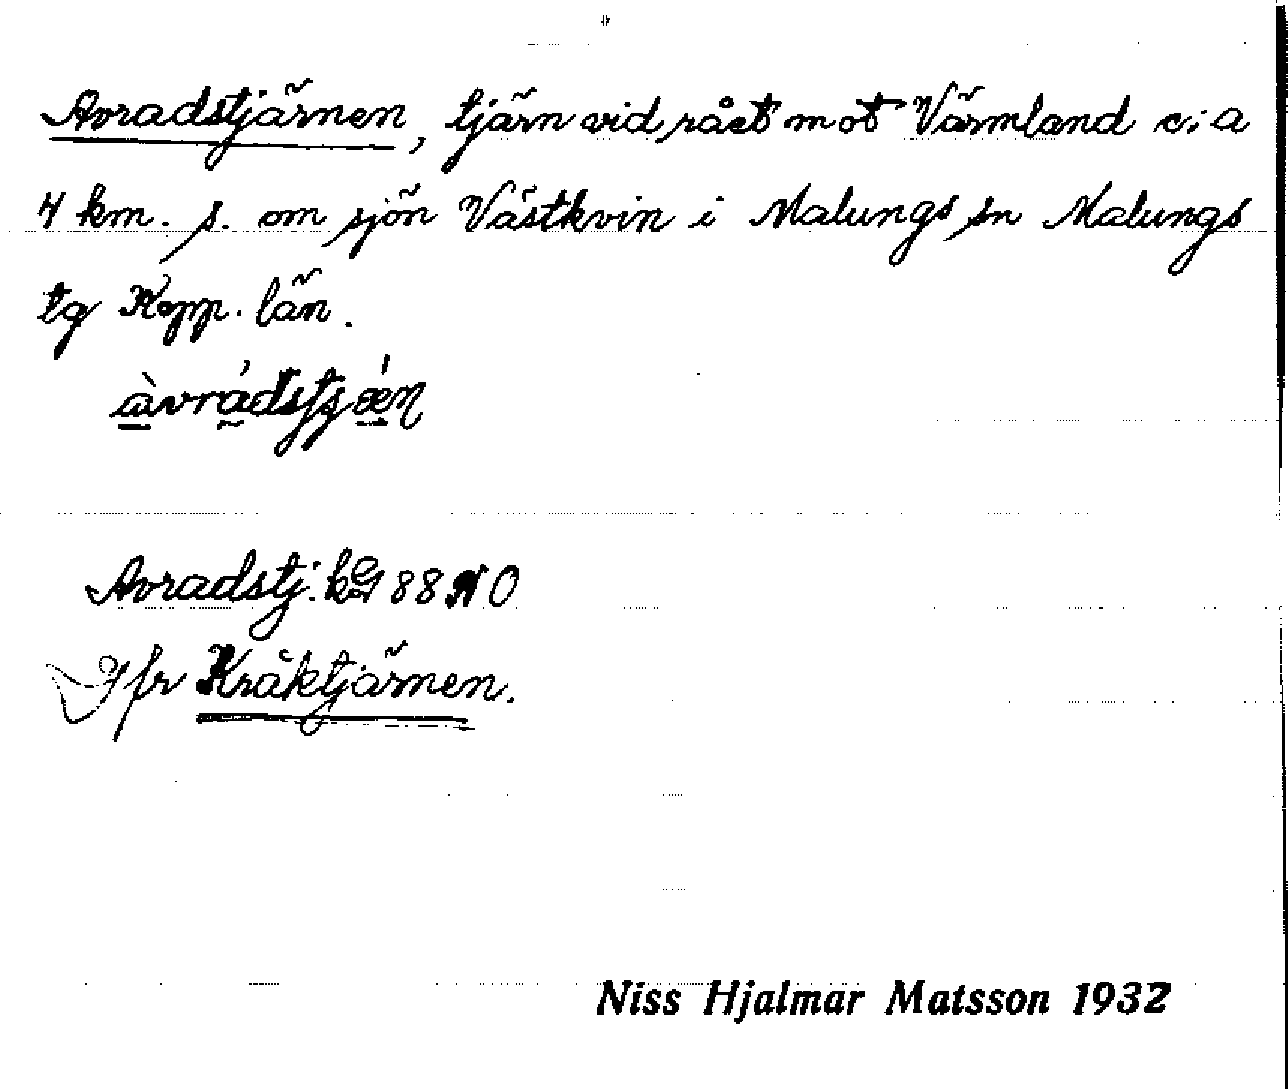 Avradstjärnen, tjärn vid rået mot Värmland c:a
4 km. s. om sjön Västkvin i Malungs sn Malungs
tg Kopp. län.
àvrádstjǽn
Avradstj. kG 88 NO
Jfr Kråktjärnen.
Niss Hjalmar Matsson 1932